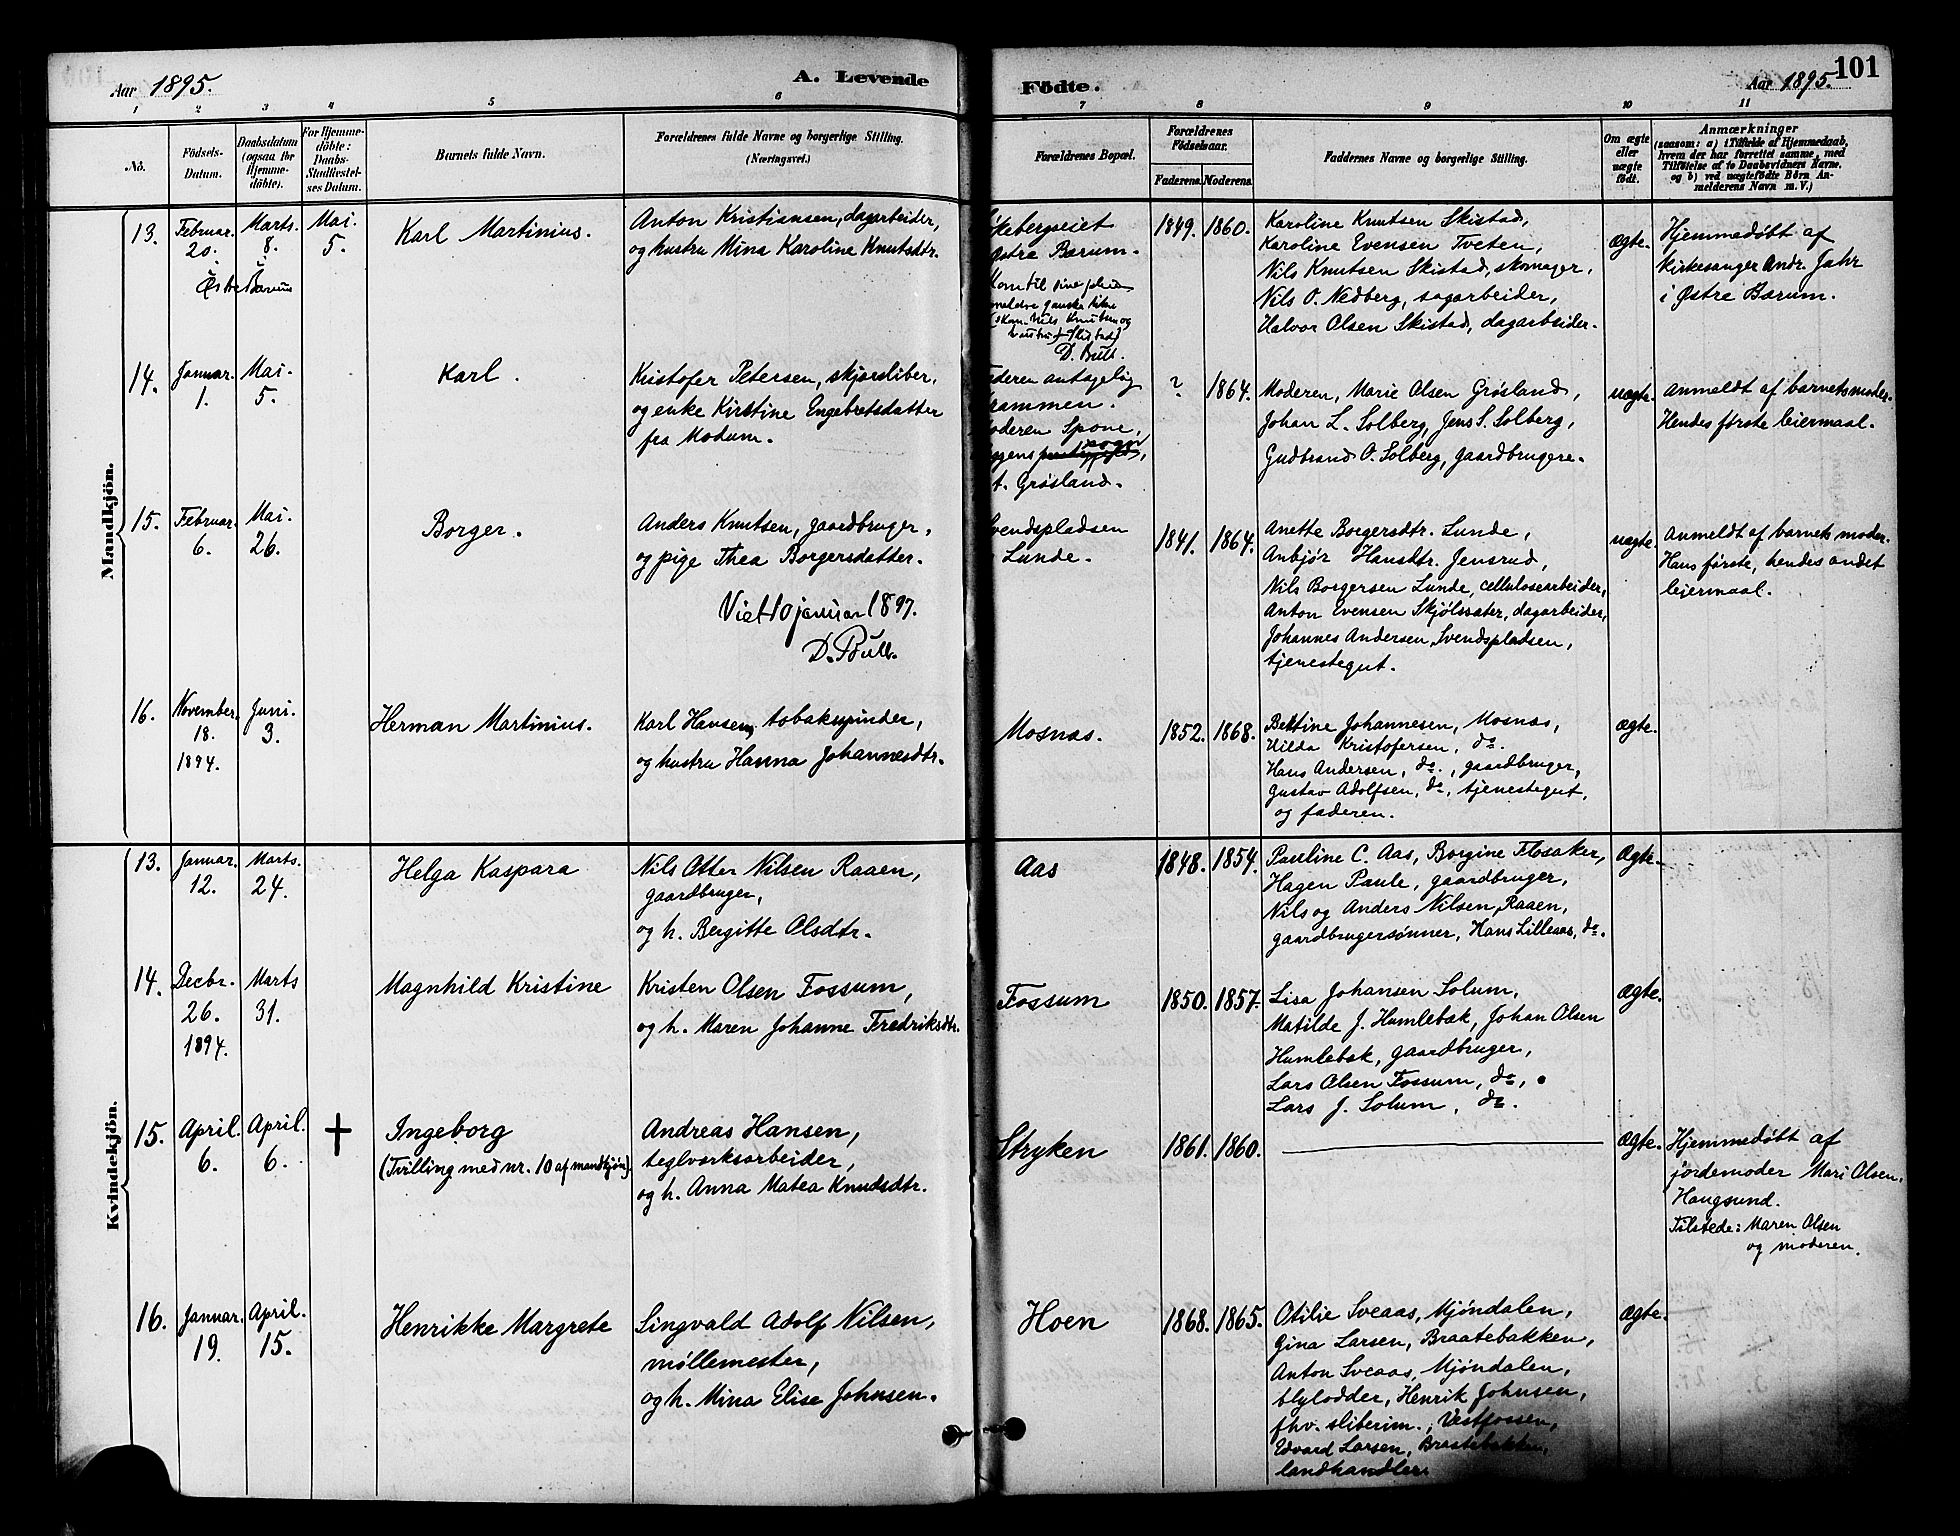 Aar 1895.
A. Levende
Födte.
Aar 1895.
101
1 2 3 4 5 6 7 8 9 10 11
No.
Födsels-
Datum.
Daabsdatum
(ogsaa for
Hjemme-
döbte).
For Hjemme-
döbte:
Daabs-
Stadfæstel-
ses Datum.
Barnets fulde Navn.
Forældrenes fulde Navne og borgerlige Stilling.
(Næringsvei.)
Forældrenes Bopæl.
Forældrenes
Födselsaar.
Faderens. Moderens.
Faddernes Navne og borgerlige Stilling.
Om ægte
eller
uægte
födt.
Anmærkninger
(saasom: a) i Tilfælde af Hjemmedaab,
hvem der har forrettet samme, med
Tilföielse af to Daabsvidners Navne,
og b) ved uægtefödte Börn An-
melderens Navn m. V.)
Mandkjön.
13.
Februar.
20.
Marts.
8.
Østre Bærum
Mai.
5.
Karl Martinius.
Anton Kristiansen, dagarbeider,
og hustru Mina Karoline Knutsdtr.
Østre Bærum.
D. Bull.
1849. 1860.
Karoline Knutsen Skistad,
Karoline Evensen Tveten,
Nils Knutsen Skistad, skomager,
Nils O. Nedberg, sagarbeider,
Halvor Olsen Skistad, dagarbeider.
ægte.
Hjemmedøbt af
kirkesanger Andr. Jahr
i Østre Bærum.
14.
Januar.
1.
Mai.
5.
Karl.
Kristofer Petersen, skjærsliber,
og enke Kirstine Engebretsdatter
fra Modum.
aderen antagelig
rammen.
oderen Spone,
sogn
t. Grøsland.
? 1864.
Moderen, Marie Olsen Grøsland,
Johan L. Solberg, Jens S. Solberg,
Gudbrand O. Solberg, gaardbrugere.
uægte.
Anmeldt af barnets moder.
Hendes første leiermaal.
15.
Februar.
6.
Mai.
26.
Borger.
Anders Knutsen, gaardbruger,
og pige Thea Borgersdatter.
Viet 10 januar 1897.
D. Bull.
vendspladsen
Lunde.
1841. 1864.
Anette Borgersdtr. Lunde,
Anbjør Hansdtr. Jensrud,
Nils Borgersen Lunde, cellulosearbeider,
Anton Evensen Skjølssæter, dagarbeider,
Johannes Andersen Svendspladsen,
tjenestegut.
uægte.
Anmeldt af barnets moder.
Hans første, hendes andet
leiermaal.
16.
November.
18.
1894.
Juni.
3.
Herman Martinius.
Karl Hansen, tobakspinder,
og hustru Hanna Johannesdtr.
Mosnæs.
1852. 1868.
Bettine Johannesen, Mosnæs,
Hilda Kristofersen, do.
Hans Andersen, do., gaardbruger,
Gustav Adolfsen, do, tjenestegut,
og faderen.
ægte.
Kvindekjön.
13.
Januar.
12.
Marts.
24.
Helga Kaspara
Nils Otter Nilsen Raaen,
gaardbruger,
og h. Bergitte Olsdtr.
Aas
1848. 1854.
Pauline C. Aas, Borgine Flosaker,
Hagen Paule, gaardbruger,
Nils og Anders Nilsen Raaen,
gaardbrugersønner, Hans Lilleaas, do.
Ægte.
14.
Decbr.
26.
1894.
Marts
31.
Magnhild Kristine
Kristen Olsen Fossum,
og h. Maren Johanne Fredriksdtr.
Fossum
1850. 1857.
Lisa Johansen Solum,
Matilde J. Humlebæk, Johan Olsen
Humlebæk, gaardbruger,
Lars Olsen Fossum, do,
Lars J. Solum, do.
Ægte.
15.
April.
6.
April.
6.
†
Ingeborg
(Tvilling med nr. 10 af mandkjøn).
Andreas Hansen,
teglværksarbeider,
og h. Anna Matea Knudsdtr.
Stryken
1861. 1860.
Ægte.
Hjemmedøbt af
jordemoder Mari Olsen,
Haugsund.
Tilstede: Maren Olsen
og moderen.
16.
Januar.
19.
April.
15.
Henrikke Margrete
Singvald Adolf Nilsen,
møllemester,
og h. Mina Elise Johnsen.
Hoen
1868. 1865.
Otilie Sveaas, Mjøndalen,
Gina Larsen, Braatebakken,
Anton Sveaas, Mjøndalen,
blylodder, Henrik Johnsen,
fhv. sliberim., Vestfossen,
Edvard Larsen, Braatebakken,
landhandler.
Ægte.